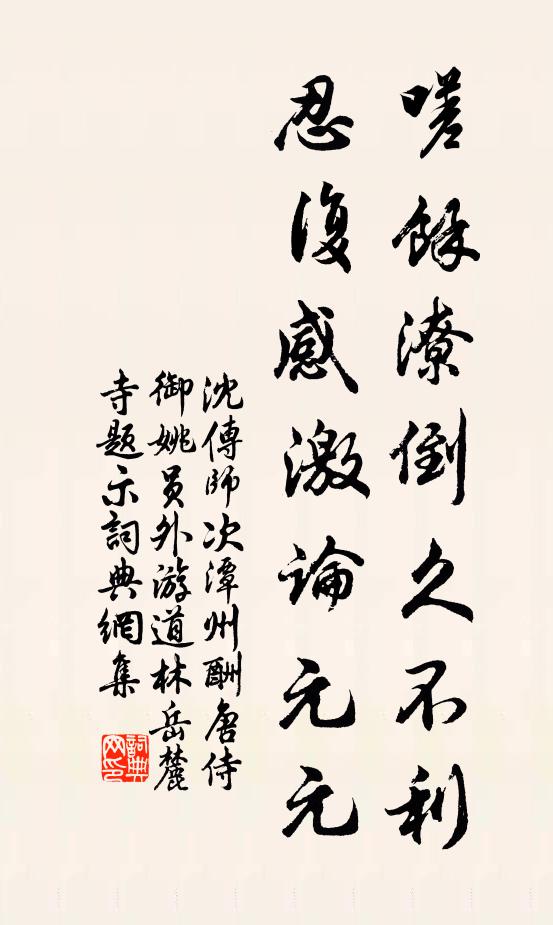 嗟餘潦倒久不利
忍復感激論元元
沈傳師次潭州酬唐侍
御姚員外游道林岳麓
寺題示詞典網集
詞典網印